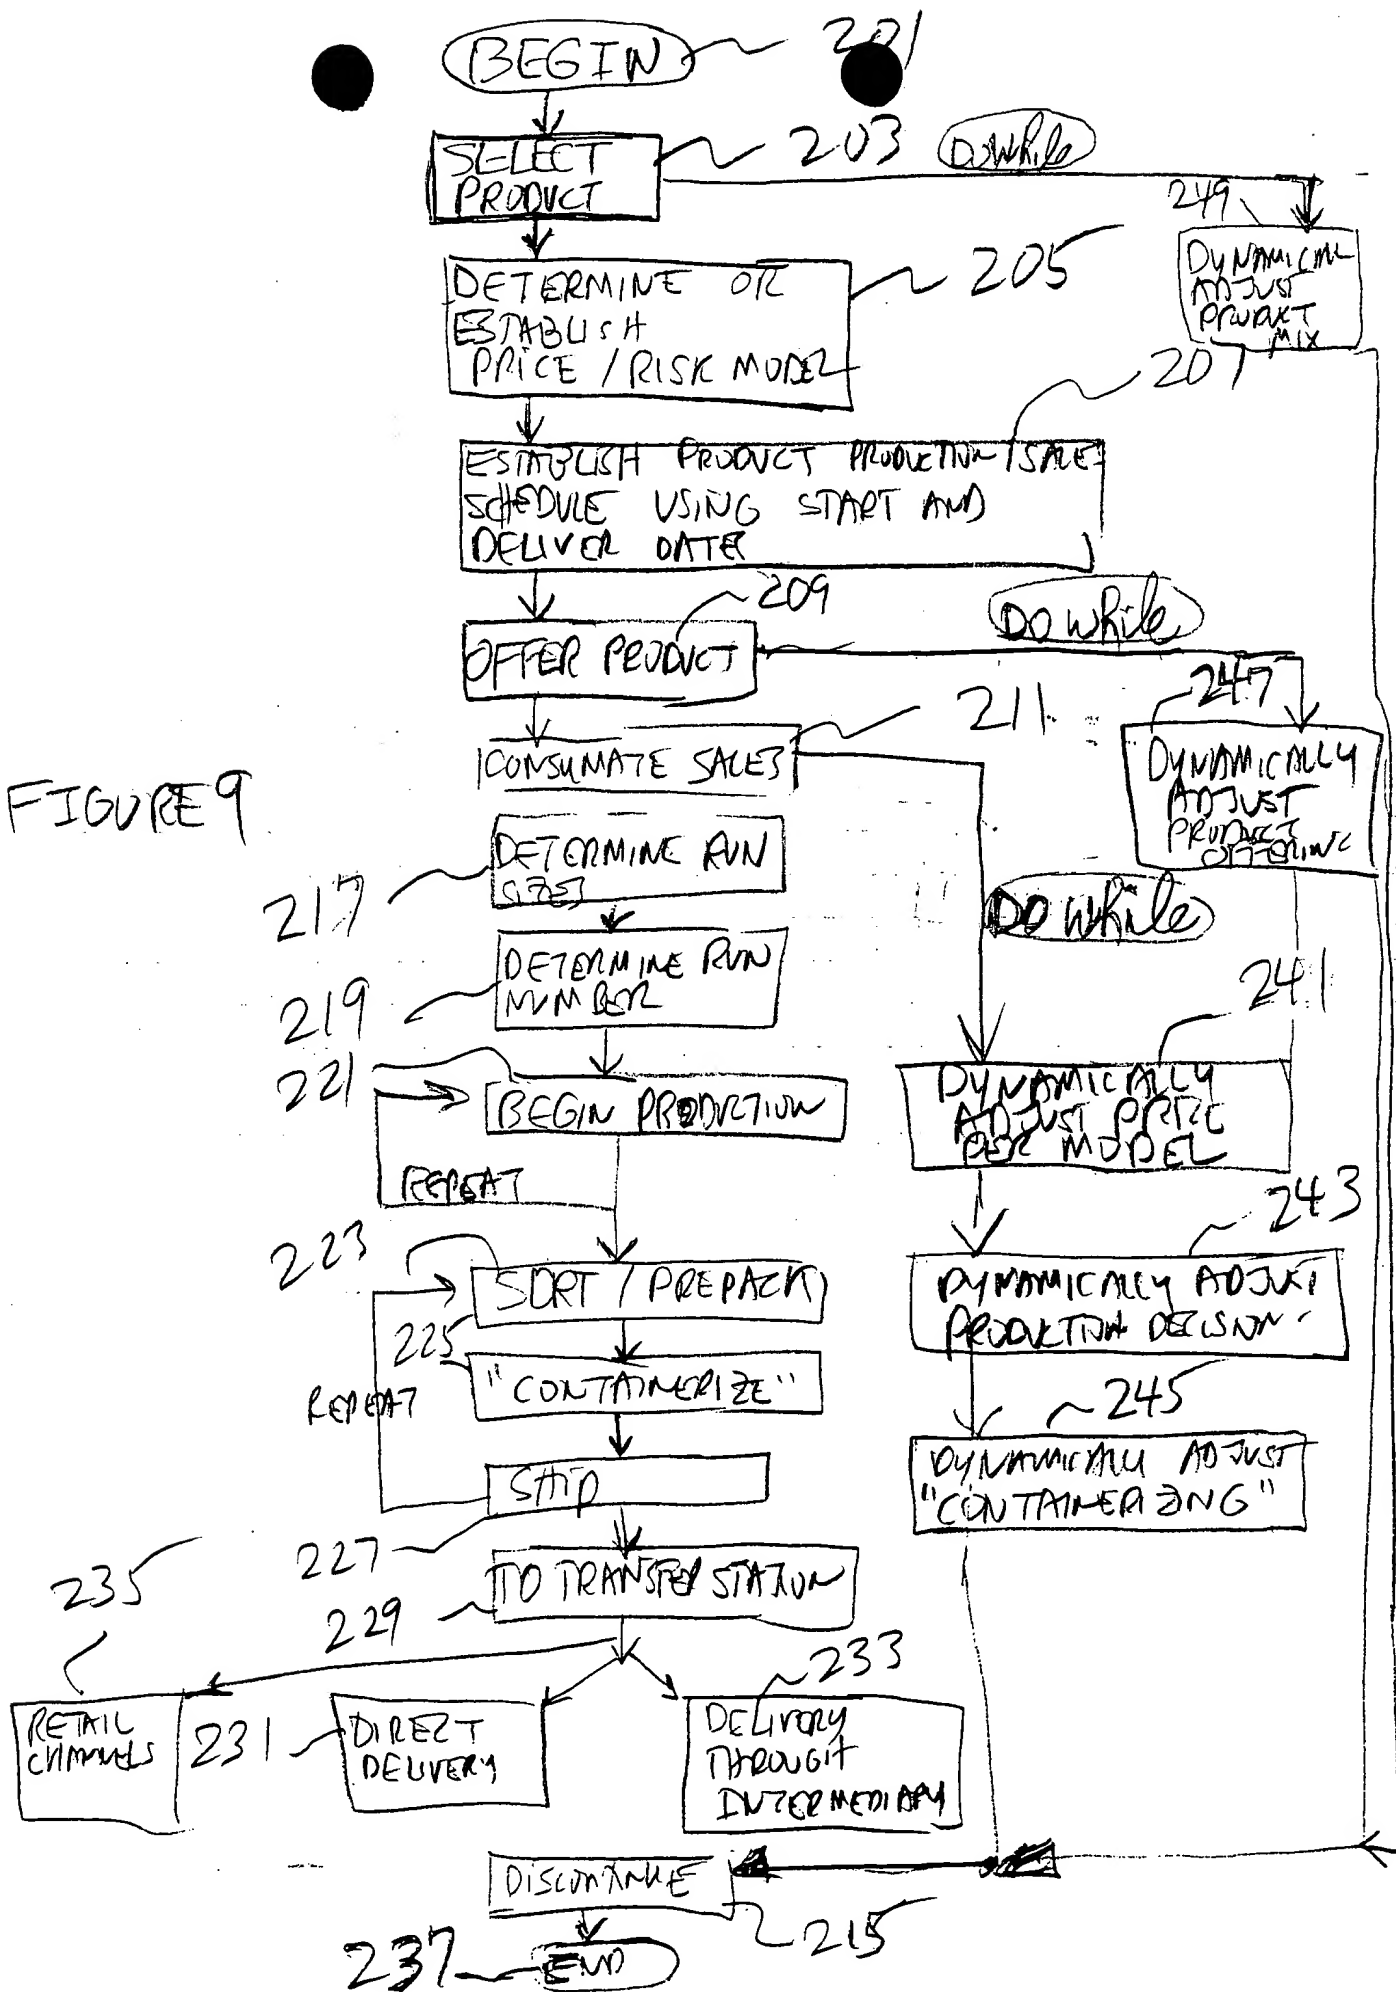 BEGIN
201
SELECT
PRODUCT
203
DO While
249
DYNAMICAL
ADJUST
PRODUCT
MIX
DETERMINE OR
ESTABLISH
PRICE / RISK MODEL
205
207
ESTABLISH PRODUCT PRODUCTION / SALES
SCHEDULE USING START AND
DELIVER DATES
209
DO While
OFFER PRODUCT
247
211
CONSUMATE SALES
DYNAMICALLY
ADJUST
PRODUCT
OFFERING
FIGURE 9
DETERMINE RUN
SIZES
217
DO While
DETERMINE RUN
NUMBER
219
241
221
BEGIN PRODUCTION
DYNAMICALLY
ADJUST PRICE
PER MODEL
REPEAT
243
223
SORT / PREPACK
DYNAMICALLY ADJUST
PRODUCTION DECISION
225
"CONTAINERIZE"
245
REPEAT
DYNAMICALLY ADJUST
"CONTAINERIZING"
SHIP
227
TO TRANSFER STATION
235
229
233
RETAIL
CHANNELS
231
DIRECT
DELIVERY
DELIVERY
THROUGH
INTERMEDIARY
DISCONTINUE
215
237
END